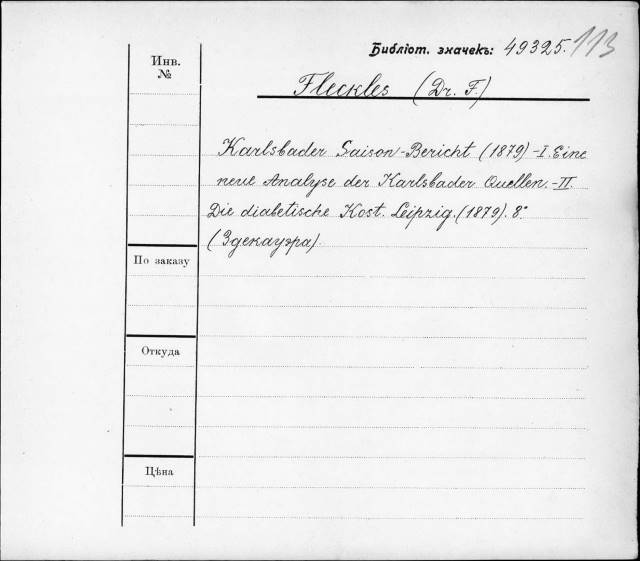 Библіот. значекъ: 49325. 113
Инв.
№
Fleckles (Dr. F.)
Karlsbader Saison-Bericht (1879) -I. Eine
neue Analyse der Karlsbader Quellen. -II.
Die diabetische Kost. Leipzig. (1879). 8°
(Здекауэра)
По заказу
Откуда
Цѣна